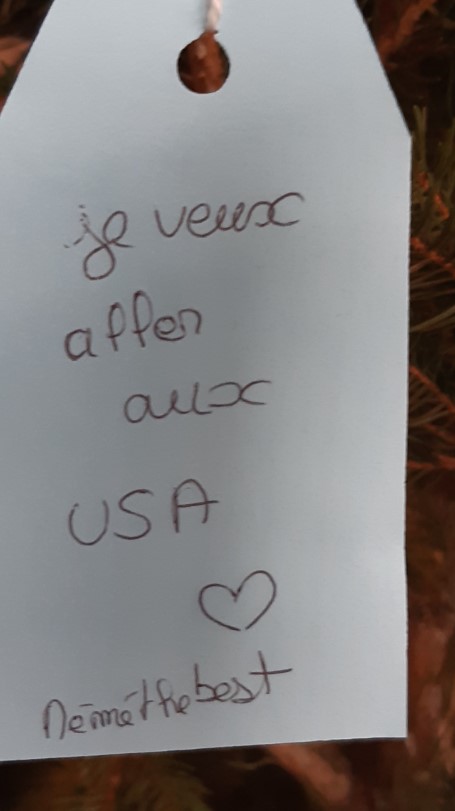 je veux
aller
aux
USA
Némé the best